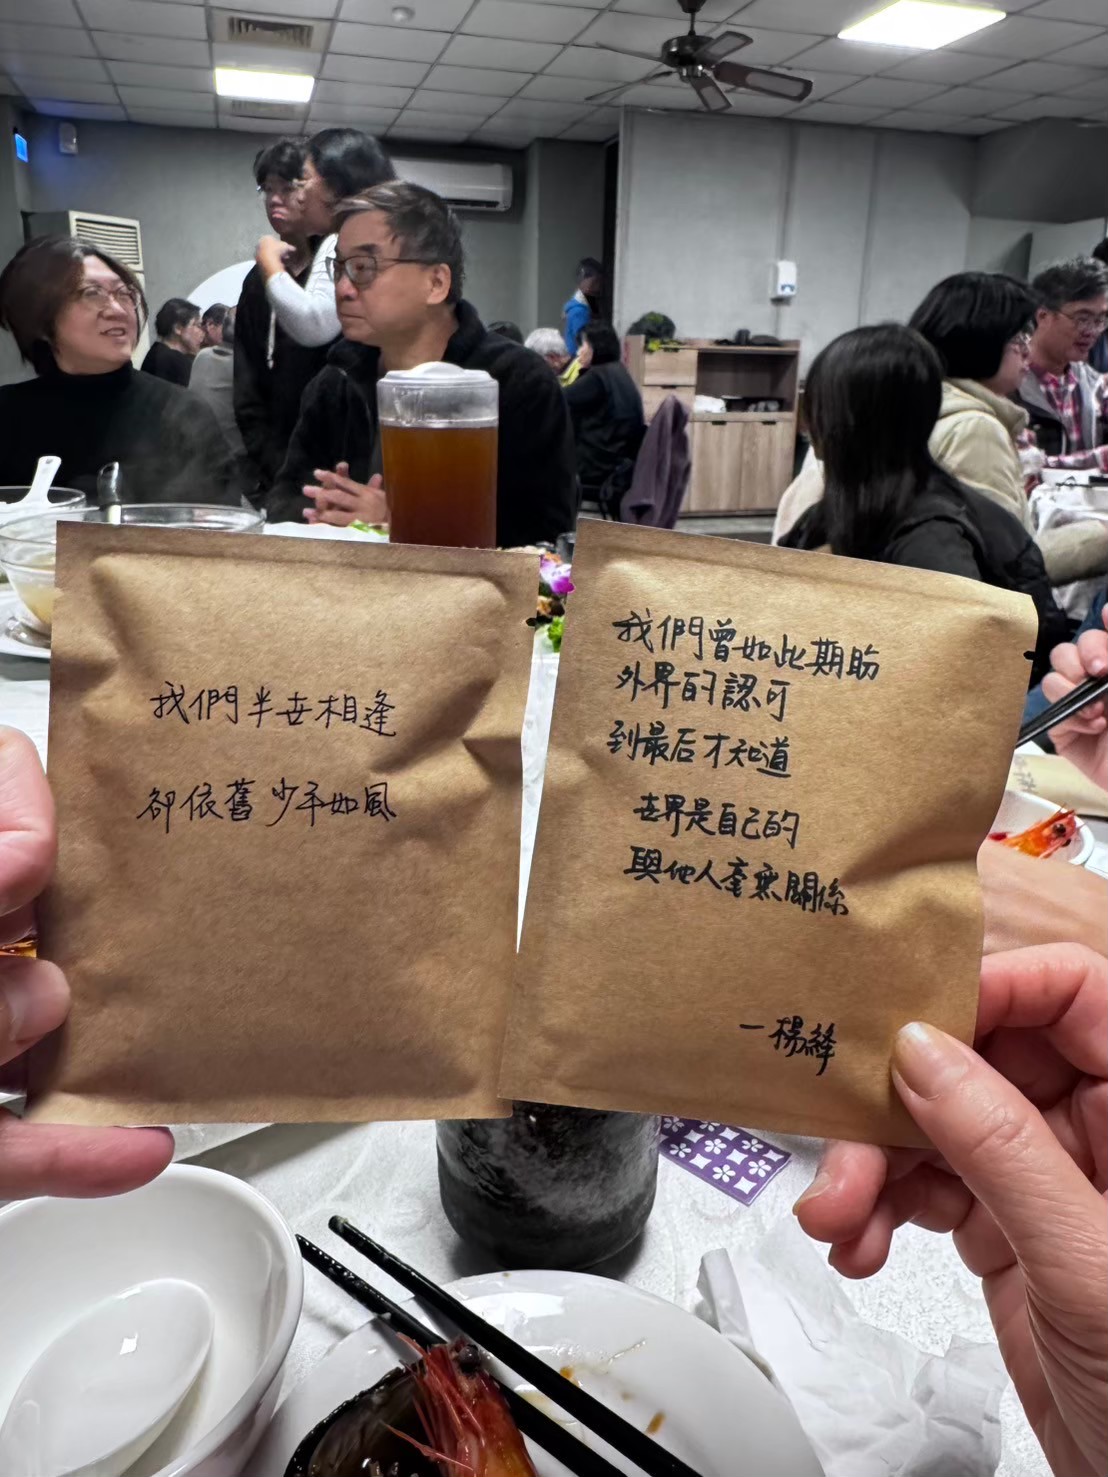 我們半世相逢
卻依舊少年如風
我們曾如此期盼
外界的認可
到最后才知道
世界是自己的
與他人毫無關係
一楊絳